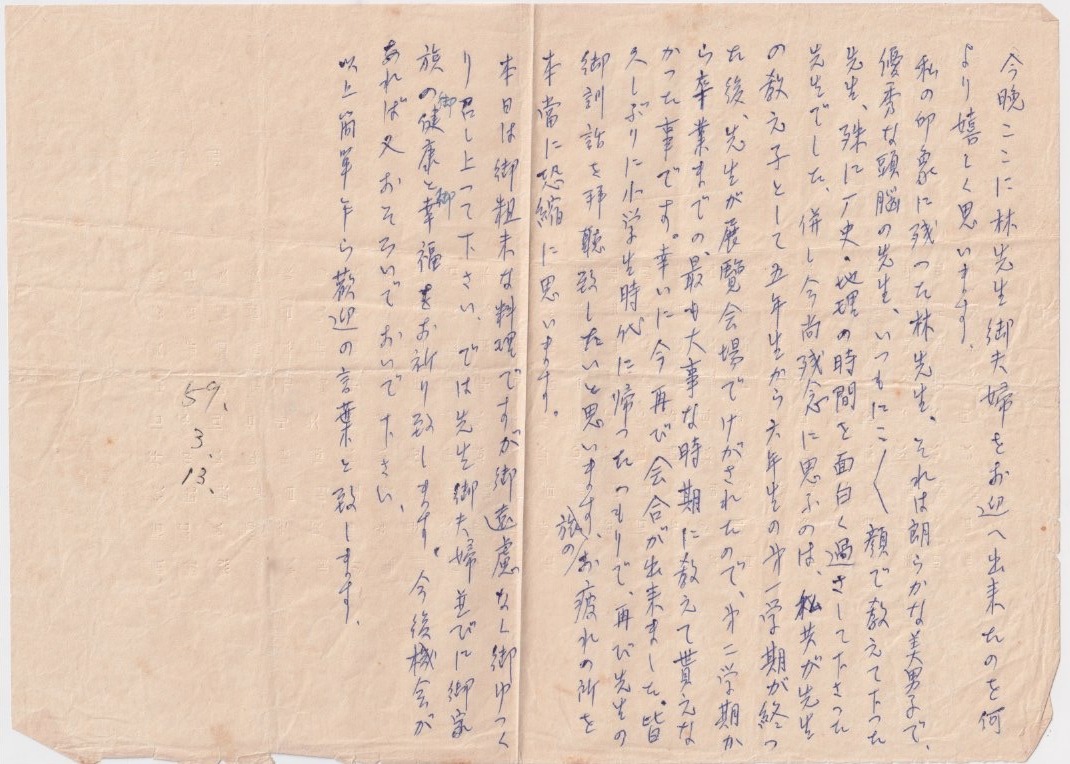 今晩ここに林先生御夫婦をお迎へ出来たのを何
より嬉しく思います。
私の印象に残つた林先生、それは朗らかな美男子で、
優秀な頭脳の先生、いつもにこ〱顔で教えて下つた
先生、殊に厂史・地理の時間を面白く過さして下さつた
先生でした、併し今尚残念に思ふのは、私共が先生
の教え子として五年生から六年生の㐧一学期が終つ
た後、先生が展覽会場でけがされたので、㐧二学期か
ら卒業までの、最も大事な時期に教えて貰えな
かつた事です。幸いに今再び会合が出来ました。皆
久しぶりに小学生時代に帰つたつもりで、再び先生の
御訓話を拝聽致したいと思います、旅のお疲れの所を
本當に恐縮に思います。
本日は御粗末な料理ですが御遠慮なく御ゆつく
り召し上つて下さい、では先生御夫婦並びに御家
族の御健康と御幸福をお祈り致します。今後機会が
あれば又おそろいでおいで下さい、
以上簡単乍ら歡迎の言葉と致します。
59.
3.
13.